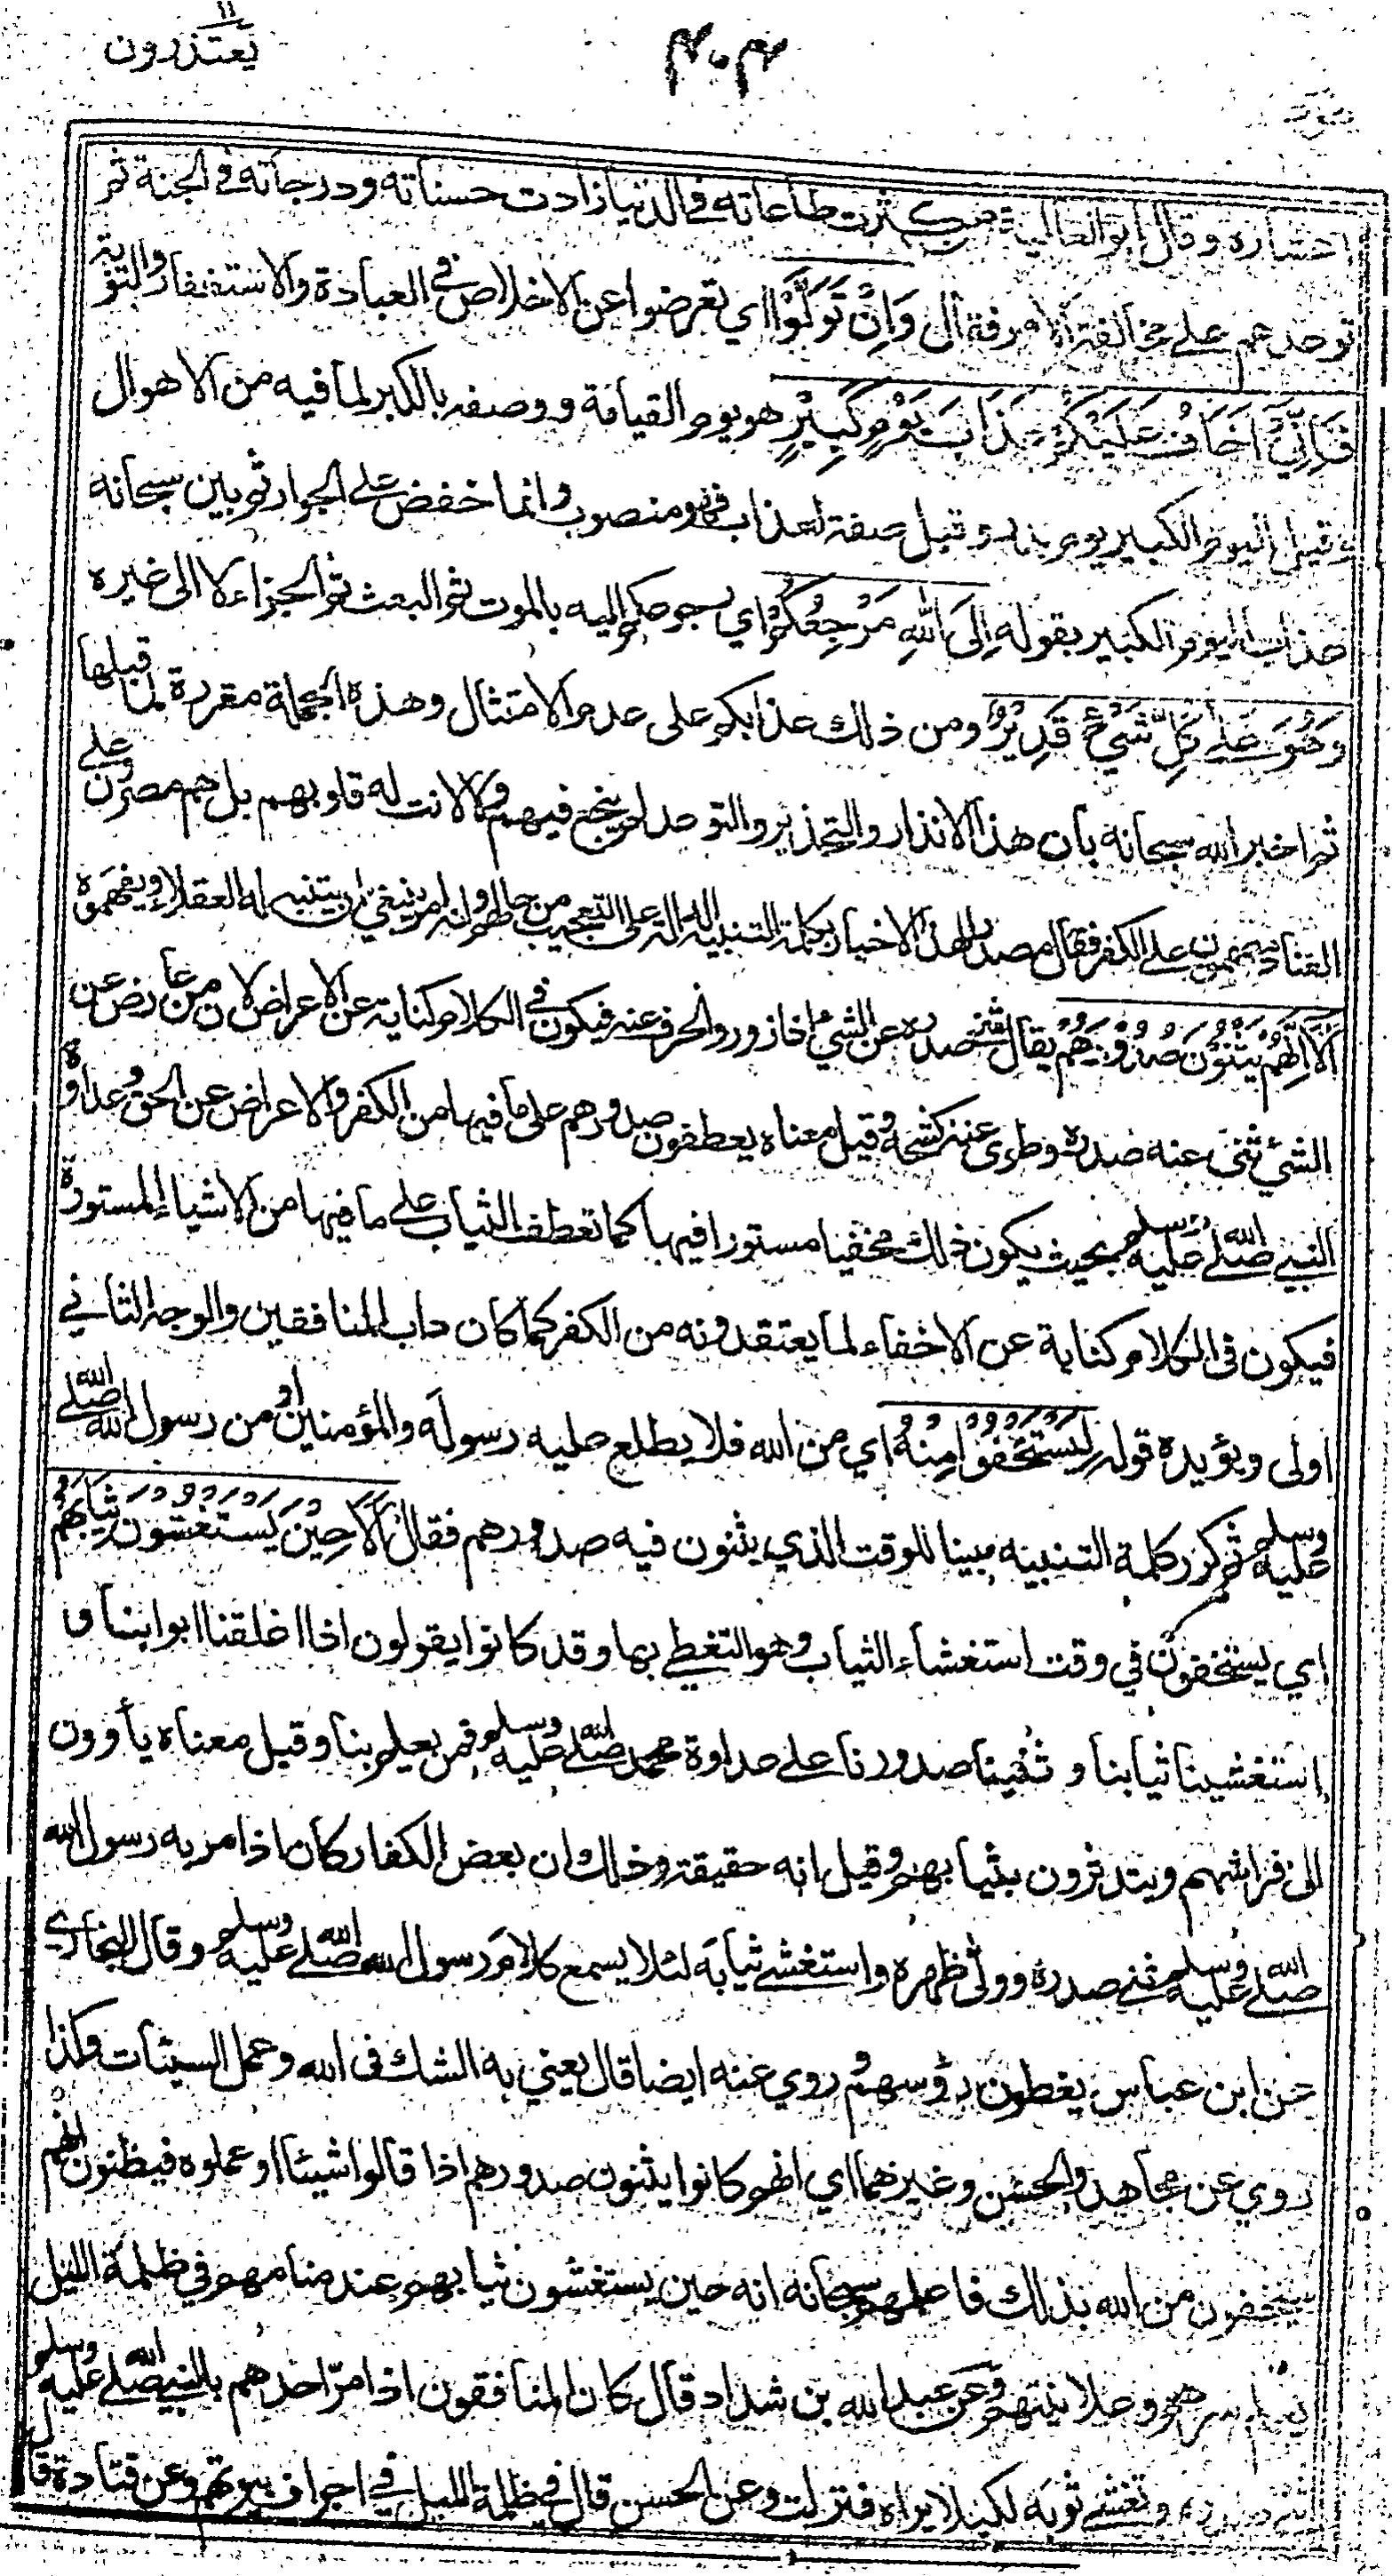 يعتذرون ١١
٤٠٤
وقال ابو العالية من كثرت طاعاته في الدنيا زادت حسناته ودرجاته في الجنة ثم
توعدهم على مخالفة الامر فقال وَاِنْ تَوَلَّوْا اي تعرضوا عن الاخلاص في العبادة والاستغفار والتوبة
فَاِنِّيْٓ اَخَافُ عَلَيْكُمْ عَذَابَ يَوْمٍ كَبِيْرٍ هو يوم القيامة ووصفه بالكبر لما فيه من الاهوال
وقيل اليوم الكبير يوم بدر وقيل صفة لعذاب فهو منصوب وانما خفض على الجوار ثم بين سبحانه
عذاب اليوم الكبير بقوله اِلَى اللّٰهِ مَرْجِعُكُمْ اي رجوعكم اليه بالموت ثم البعث ثم الجزاء لا الى غيره
وَهُوَ عَلٰى كُلِّ شَيْءٍ قَدِيْرٌ ومن ذلك عذابكم على عدم الامتثال وهذه الجملة مقررة لما قبلها
ثم اخبر الله سبحانه بان هذا الانذار والتحذير والتوعد لم ينجع فيهم ولا لانت له قلوبهم بل هم مصرون على
العناد مصممون على الكفر فقال مصدرا لهذا الاخبار بكلمة التنبيه الدالة على التعجيب من حالهم وانه امر ينبغي ان يتنبه له العقلاء ويفهموه
اَلَآ اِنَّهُمْ يَثْنُوْنَ صُدُوْرَهُمْ يقال ثنى صدره عن الشيء اذا ازور وانحرف عنه فيكون في الكلام كناية عن الاعراض لان من اعرض عن
الشيء ثنى عنه صدره وطوى عنه كشحه وقيل معناه يعطفون صدورهم على ما فيها من الكفر والاعراض عن الحق وعداوة
النبي صلى الله عليه وسلم بحيث يكون ذلك مخفيا مستورا فيها كما تعطف الثياب على ما فيها من الاشياء المستورة
فيكون في الكلام كناية عن الاخفاء لما يعتقدونه من الكفر كما كان داب المنافقين والوجه الثاني
اولى ويؤيده قوله لِيَسْتَخْفُوْا مِنْهُ اي من الله فلا يطلع عليه رسوله والمؤمنين او من رسول الله صلى الله
عليه وسلم ثم كرر كلمة التنبيه مبينا للوقت الذي يثنون فيه صدورهم فقال اَلَا حِيْنَ يَسْتَغْشُوْنَ ثِيَابَهُمْ
اي يستخفون في وقت استغشاء الثياب وهو التغطي بها وقد كانوا يقولون اذا اغلقنا ابوابنا و
استغشينا ثيابنا وثنينا صدورنا على عداوة محمد صلى الله عليه وسلم فمن يعلم بنا وقيل معناه يأوون
الى فراشهم ويتدثرون بثيابهم وقيل انه حقيقة وذلك ان بعض الكفار كان اذا مر به رسول الله
صلى الله عليه وسلم ثنى صدره وولى ظهره واستغشى ثيابه لئلا يسمع كلام رسول الله صلى الله عليه وسلم وقال البخاري
عن ابن عباس يغطون رؤسهم وروي عنه ايضا قال يعني به الشك في الله وعمل السيئات وكذا
روي عن مجاهد والحسن وغيرهما اي انهم كانوا يثنون صدورهم اذا قالوا شيئا او عملوه فيظنون انهم
يستخفون من الله بذلك فاعلمهم سبحانه انه حين يستغشون ثيابهم عند منامهم في ظلمة الليل
يعلم سرهم وعلانيتهم وعن عبد الله بن شداد قال كان المنافقون اذا مر احدهم بالنبي صلى الله عليه وسلم
ثنى صدره وتغشى ثوبه لكيلا يراه فنزلت وعن الحسن قال في ظلمة الليل في اجواف بيوتهم وعن قتادة قال